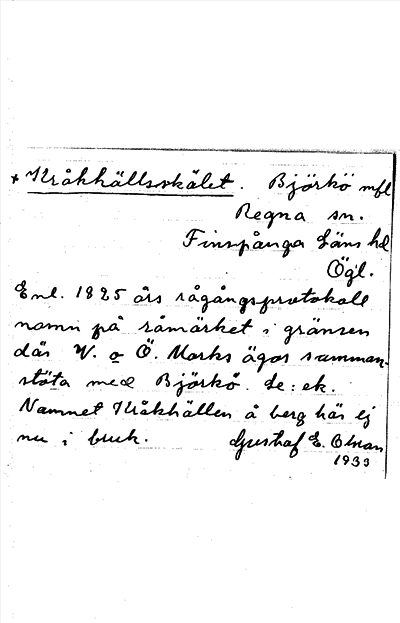 * Kråkhällsskälet. Björkö mfl
Regna sn.
Finspånga Läns hd
Ögl.
Enl. 1825 års rågångsprotokoll
namn på råmärket i gränsen
där V. o Ö. Marks ägor samman-
stöta med Björkö. Se: ek.
Namnet Kråkhällen å berg här ej
nu i bruk. Gustaf E. Olson
1933